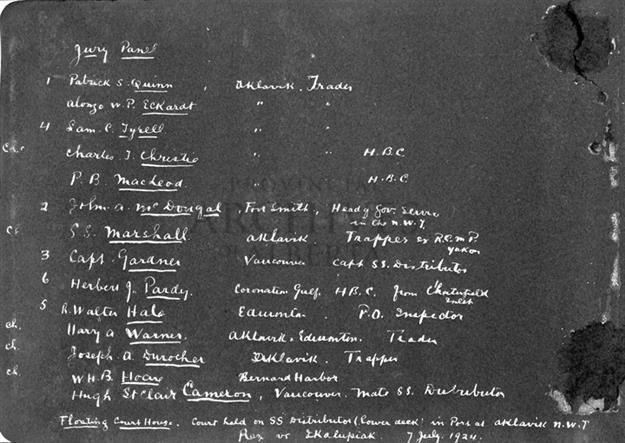 Jury Panel
1 Patrick S. Quinn, Aklavik. Trader
Alonzo W. P. Eckardt " "
4 Sam. C. Tyrell " "
Ch. Charles J. Christie " " H.B.C
P. B. MacLeod " H.B.C
2 John. A. McDougal Fort Smith, Heady Gov. Servn
in the N.W.T.
Ch S.S. Marshall. Aklavik. Trapper ex R.C.M.P.
Yukon
3 Capt. Gardner Vancouver Capt SS. Distributor
6 Herbert J. Pardy. Coronation Gulf. H.B.C. from Chesterfield
Inlet
5 R. Walter Hale Edmonton. P.O. Inspector
ch. Harry A Warner. Aklavik. Edmonton. Trader
ch. Joseph A. Durocher Aklavik. Trapper
ch W H. B. Hoare Bernard Harbor
Hugh St Clair Cameron, Vancouver. Mate SS. Distributor
Floating Court House. Court held on SS Distributor (lower deck) in Port at Aklavik N.W.T
Rex vs Ekalupiak. 7 July. 1924.